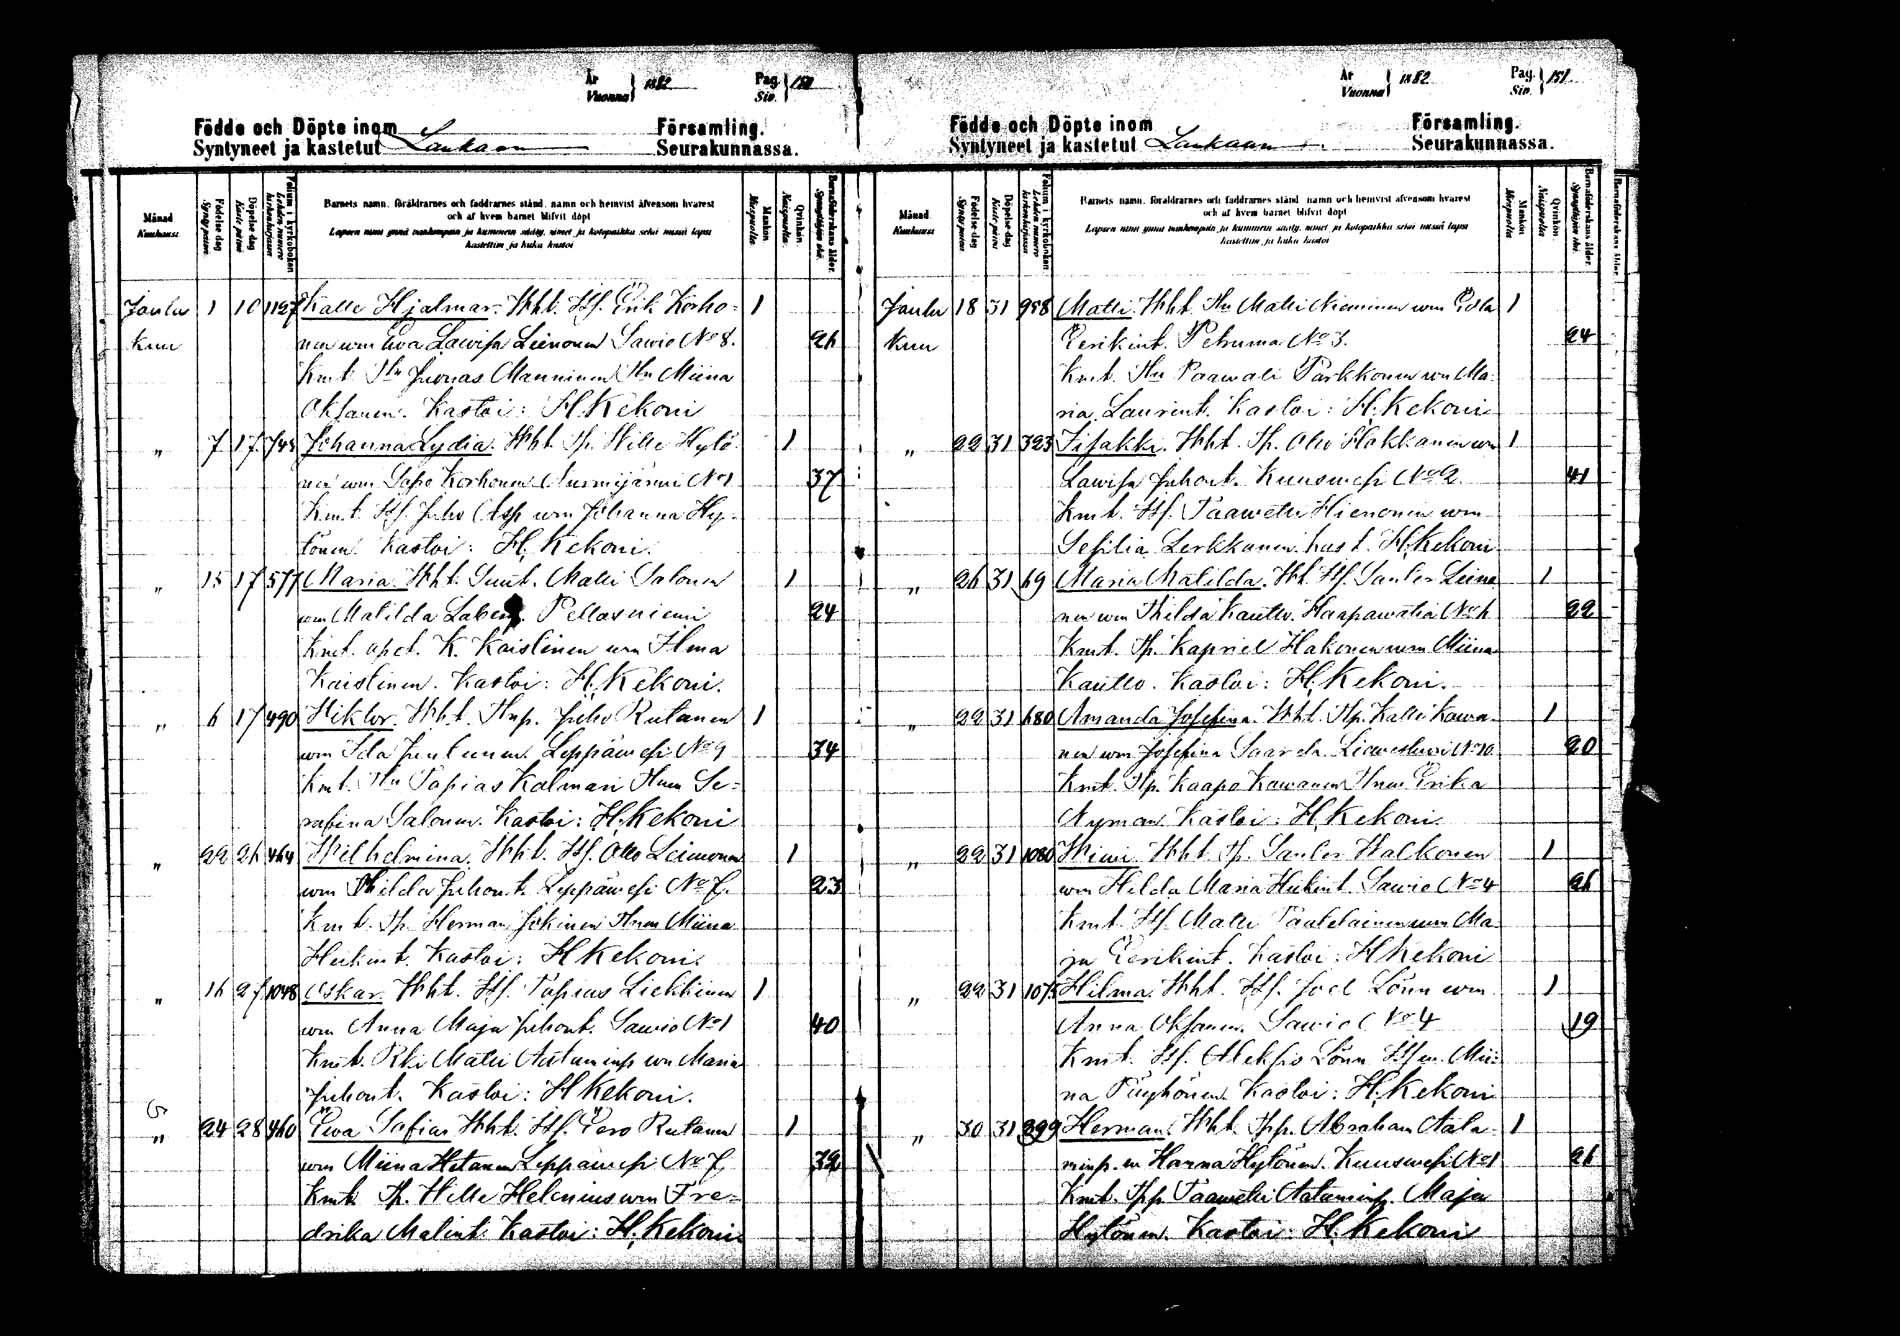 År
Vuonna } 1882
Pag.
Siv. } 150
Födde och Döpte inom
Syntyneet ja kastetut Laukaan
Församling.
Seurakunnassa.
Månad
Kuukausi
Födelse dag
Syntymäpäivä
Döpelse dag
Kaste päivä
Folium i kyrkoboken
Lehden numero kirkonkirjassa
Barnets namn, föräldrarnes och faddrarnes stånd, namn och hemvist äfvensom hvarest
och af hvem barnet blifvit döpt
Lapsen nimi ynnä vanhempain ja kummein sääty, nimet ja kotopaikka sekä missä lapsi
kastettiin ja kuka kastoi
Mankön
Miespuolia
Qvinkön
Naispuolia
Barnaföderskans ålder.
Synnyttäjän ikä.
Januar 1 10 1127 Kalle Hjalmar. Wht. Itsl. Erik Korho- 1
kuu nen wm Ewa Lawisa Leinonen Sawio No 8. 26
Kmt. Tln Juonas Manninen Tln Miina
Oksanen. Kastoi: H. Kekoni
" 7 17 745 Johanna Lydia. Wht. Tp. Wille Hytö- 1
nen wm Sapo Korhonen Nurmijärwi No 1 37
Kmt. Itsl. Juho Asp wm Johanna Hy-
tönen. Kastoi: H. Kekoni.
" 15 17 577 Maria. Wht. Suut. Matti Salonen 1
wm Matilda Pellosniemi 24
Kmt. K. Kaistinen wm Ilma
Kaistinen. Kastoi: H. Kekoni.
" 6 17 490 Wiktor. Wht. Juho Rutanen 1
wm Ida Juutunen Leppäwesi No 9 34
Kmt. Tln Topias Kalmari Se-
rafina Salonen. Kastoi: H. Kekoni
" 22 26 464 Wilhelmina. Wht. Itsl. Otto Leinonen 1
wm Hilda Juhont. Leppäwesi No 7. 23
Kmt. Tp. Herman Jokinen Miina
Heikint. Kastoi: H Kekoni.
" 16 27 1048 Oskar. Wht. Itsl. Topias Liekkinen 1
wm Anna Maja Juhont. Sawio No 1 40
Kmt. Rki Matti Aataminp wm Maria
Juhont. Kastoi: H Kekoni.
" 24 28 460 Ewa Sofia. Wht. Itsl. Eero Rutanen 1
wm Miina Hetanen Leppäwesi No 7, 32
Kmt. Tp. Wille Helenius wm Fre-
drika Malint. Kastoi: H. Kekoni
År
Vuonna } 1882
Pag.
Siv. } 151
Födde och Döpte inom
Syntyneet ja kastetut Laukaan
Församling.
Seurakunnassa.
Månad
Kuukausi
Födelse dag
Syntymäpäivä
Döpelse dag
Kaste päivä
Folium i kyrkoboken
Lehden numero kirkonkirjassa
Barnets namn, föräldrarnes och faddrarnes stånd, namn och hemvist äfvensom hvarest
och af hvem barnet blifvit döpt
Lapsen nimi ynnä vanhempain ja kummein sääty, nimet ja kotopaikka sekä missä lapsi
kastettiin ja kuka kastoi
Mankön
Miespuolia
Qvinkön
Naispuolia
Barnaföderskans ålder.
Synnyttäjän ikä.
Januar 18 31 958 Matti. Wht. Tln Matti Nieminen wm Edla 1
kuu Eerikint. Petruma No 3. 24
Kmt. Tln Paawali Parkkonen wm Ma-
ria Laurint. Kastoi: H. Kekoni
" 22 31 323 Iisakki. Wht. Tp. Otto Hakkanen wm 1
Lawisa Juhont. Kuuswesi No 2. 41
Kmt. Itsl. Taawetti Hienonen wm
Sesilia Lerkkanen. Kast. H. Kekoni
" 26 31 69 Maria Matilda. Wht. Itsl. Santeri Leino- 1
nen wm Hilda Kautto. Haapawatia No 4 22
Kmt. Tp. Kapriel Hakonen wm Miina
Kautto. Kastoi: H. Kekoni.
" 22 31 680 Amanda Josefina. Wht. Tp. Kalle Kawa- 1
nen wm Josefina Saarela Liewestuori No 10 20
Kmt. Tp. Kaapo Kawanen Erika
Nyman. Kastoi: H. Kekoni.
" 22 31 1080 Wiiwi. Wht. Tp. Santeri Walkonen 1
wm Hilda Maria Heikint. Sawio No 4 26
Kmt. Itsl. Matti Taaletainen wm Ma-
ja Eerikint. Kastoi: H Kekoni
" 22 31 1075 Hilma. Wht. Itsl. Joel Lönn wm 1
Anna Oksanen. Sawio No 4 19
Kmt. Itsl. Aleksis Lönn Mii-
na Püyhönen. Kastoi: H. Kekoni
" 30 31 299 Herman. Wht. Tpp. Abraham Aata- 1
minp. wm Hanna Hytönen. Kuuswesi No 1 26
Kmt. Tpp. Taawetti Aataminp. Maja
Hytönen. Kastoi: H. Kekoni